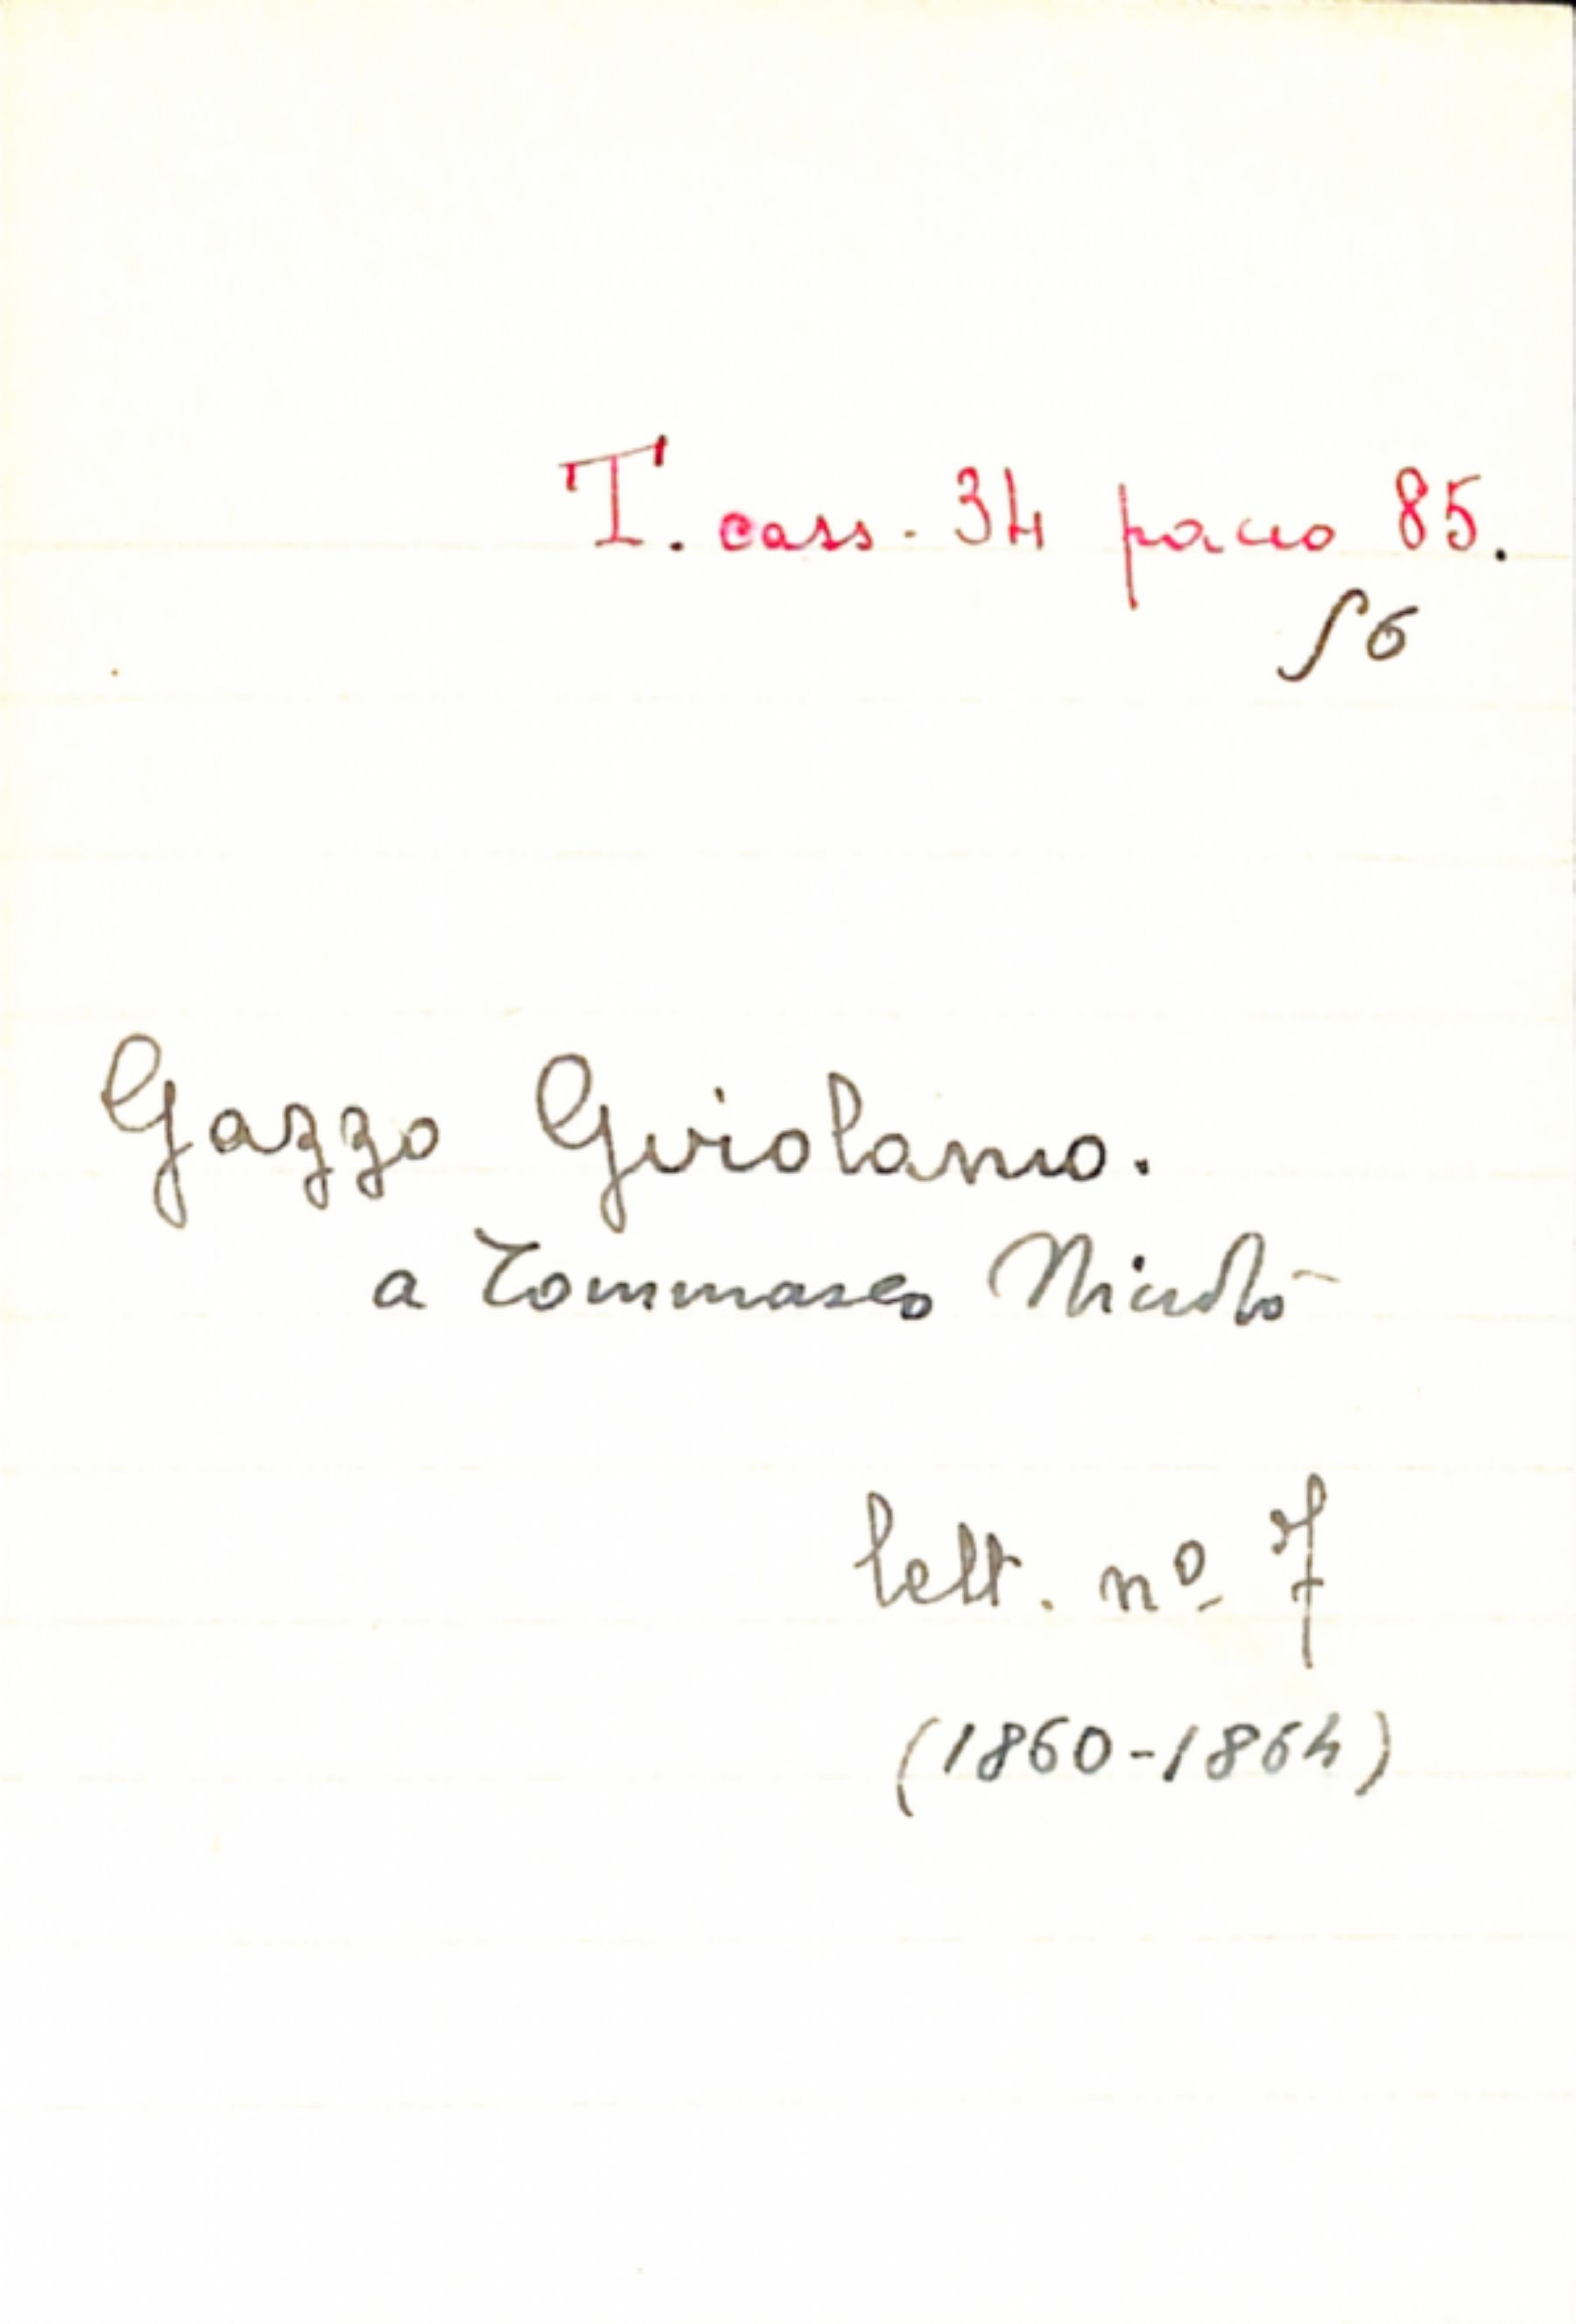 T. cass. 34 pacco 85.
∫ 6
Gazzo Girolamo.
a Tommaseo Nicolò
lett. nº 7
(1860-1864)